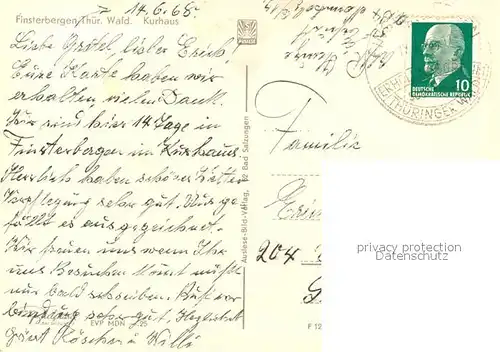 Finsterbergen Thür. Wald. Kurhaus
14.6.68.
Liebe Gretel, lieber Erich!
Eure Karte haben wir
erhalten, vielen Dank.
Wir sind hier 14 Tage in
Finsterbergen im Kurhaus.
Herrlich haben schönes Wetter
Verpflegung sehr gut. Uns ge-
fällt es ausgezeichnet.
Wir freuen uns wenn Ihr
uns Besuchen könnt müßt
uns bald schreiben. Bus ver
bindung sehr gut. Herzlichst
Grüßt Röschen u. Willi
EVP MDN -,25
Auslese-Bild-Verlag, 62 Bad Salzungen
DEUTSCHE
DEMOKRATISCHE REPUBLIK
10
THÜRINGER
Familie
204
F 12
privacy protection
watermark